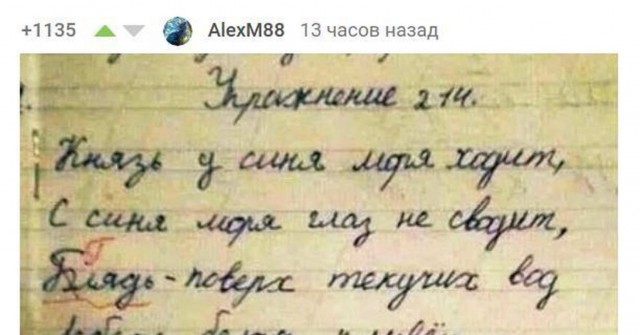 +1135 AlexM88 13 часов назад
Упражнение 214.
Князь у синя моря ходит,
С синя моря глаз не сводит,
Г
Блядь - поверх текучих вод